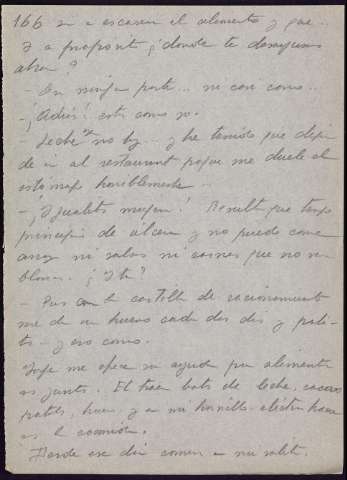 166 va a escasear el alimento y que...
Y a propósito ¿donde te desayunas
ahora?
- En ninguna parte... ni casi como...
- ¡Adiós! está como yo.
- Leche no hay... y he tenido que dejar
de ir al restaurant porque me duele el
estómago horriblemente...
- ¡Igualito mujer! Resulta que tengo
principio de úlcera y no puedo comer
arroz ni salsas ni carnes que no sean
blancas. ¿Y tú?
- Pues con la cartilla de racionamiento
me dan un huevo cada dos días y pata-
tas y eso como.
Jorge me ofrece su ayuda para alimentar-
nos juntos. El trae bote de leche, cacao,
patatas, huevos y en un hornillo eléctrico hace-
mos la comida.
Desde ese día comen en mi salita.